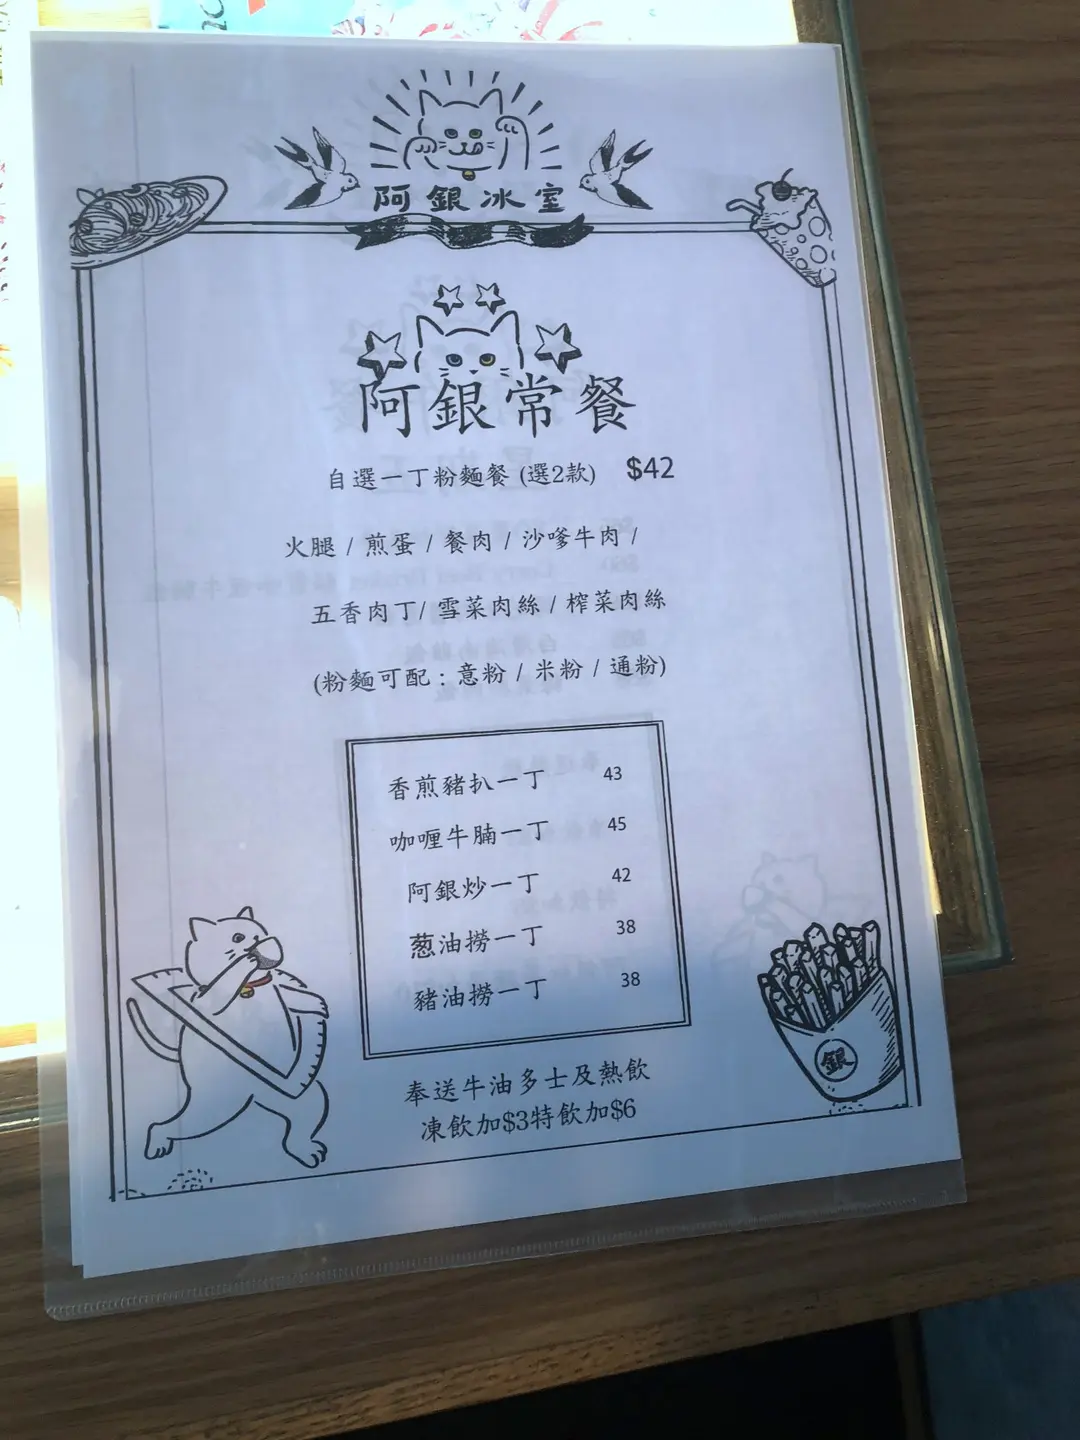 阿銀冰室
阿銀常餐
自選一丁粉麵餐 (選2款) $42
火腿 / 煎蛋 / 餐肉 / 沙嗲牛肉 /
五香肉丁/ 雪菜肉絲 / 榨菜肉絲
(粉麵可配：意粉 / 米粉 / 通粉)
香煎豬扒一丁 43
咖喱牛腩一丁 45
阿銀炒一丁 42
葱油撈一丁 38
豬油撈一丁 38
銀
奉送牛油多士及熱飲
凍飲加$3特飲加$6